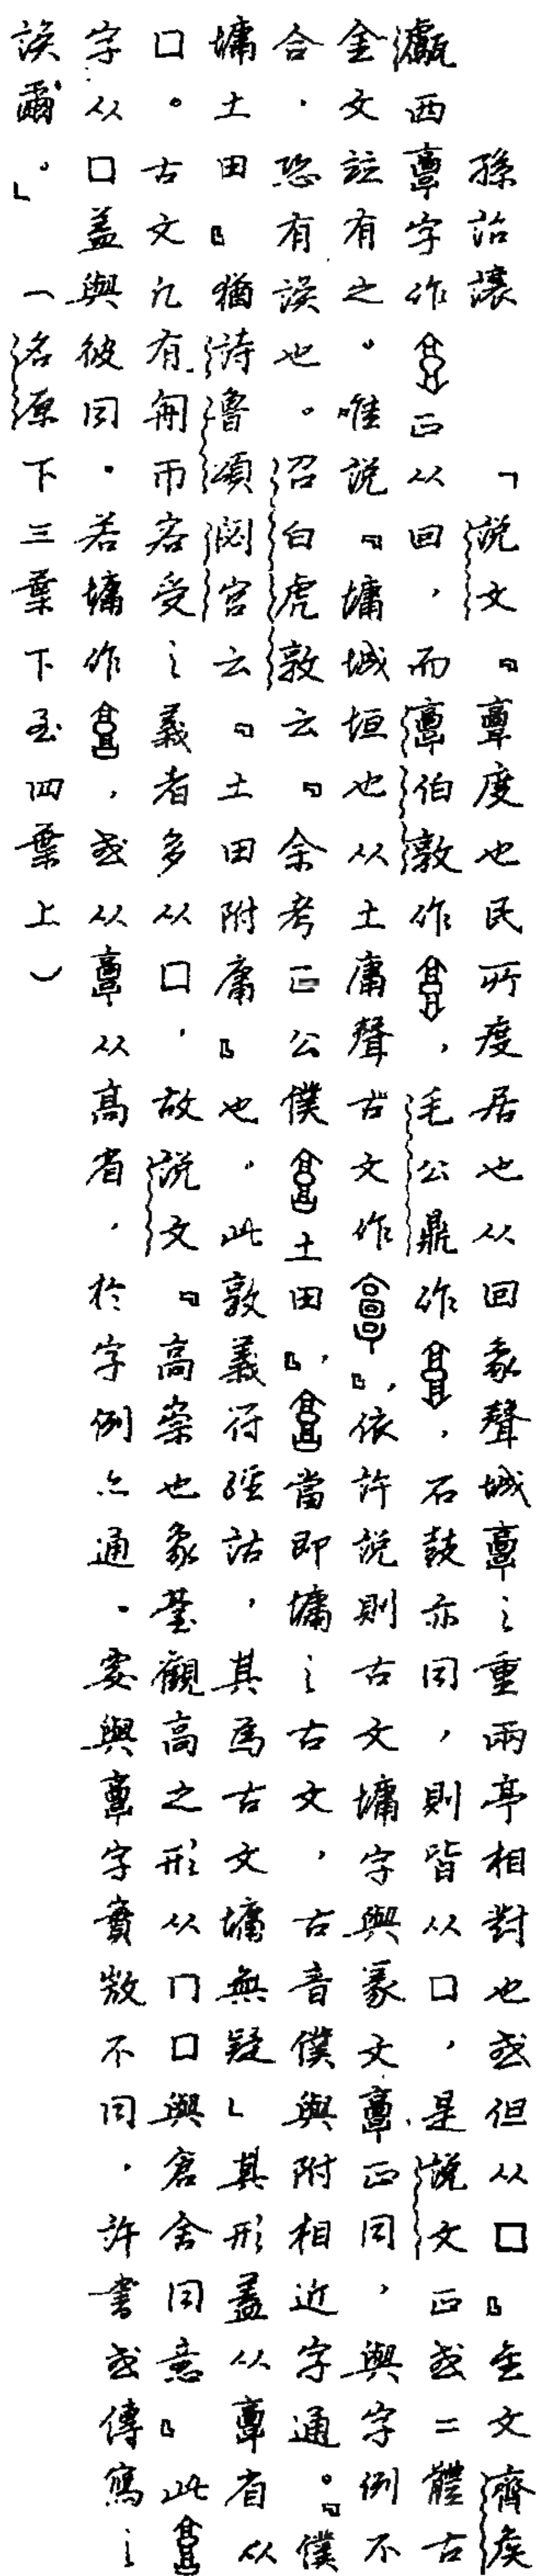 孫詒讓　「說文『𩫖度也民所度居也从回象聲城𩫖之重兩亭相對也或但从口』金文齊侯
甗西𩫖字作正从回，而𩫖伯𣪘作，毛公鼎作，石鼓亦同，則皆从口，是說文正或二體古
金文註有之。唯說『墉城垣也从土庸聲古文作』，依許說則古文墉字與篆文𩫖正同，與字例不
合．恐有誤也。召白虎敦云『余考正公僕土田』，當即墉之古文，古音僕與附相近字通。『僕
墉土田』猶詩魯頌閟宮云『土田附庸』也，此敦義符經詁，其為古文墉無疑」其形蓋从𩫖省从
口。古文凡有冊帀容受之義者多从口，故說文『高崇也象臺觀高之形从冂口與倉舍同意』此
字从口蓋與彼同．若墉作，或从𩫖从高省，於字例亦通．要與𩫖字實㪚不同．許書或傳寫之
誤爾。」（名原下三葉下至四葉上）